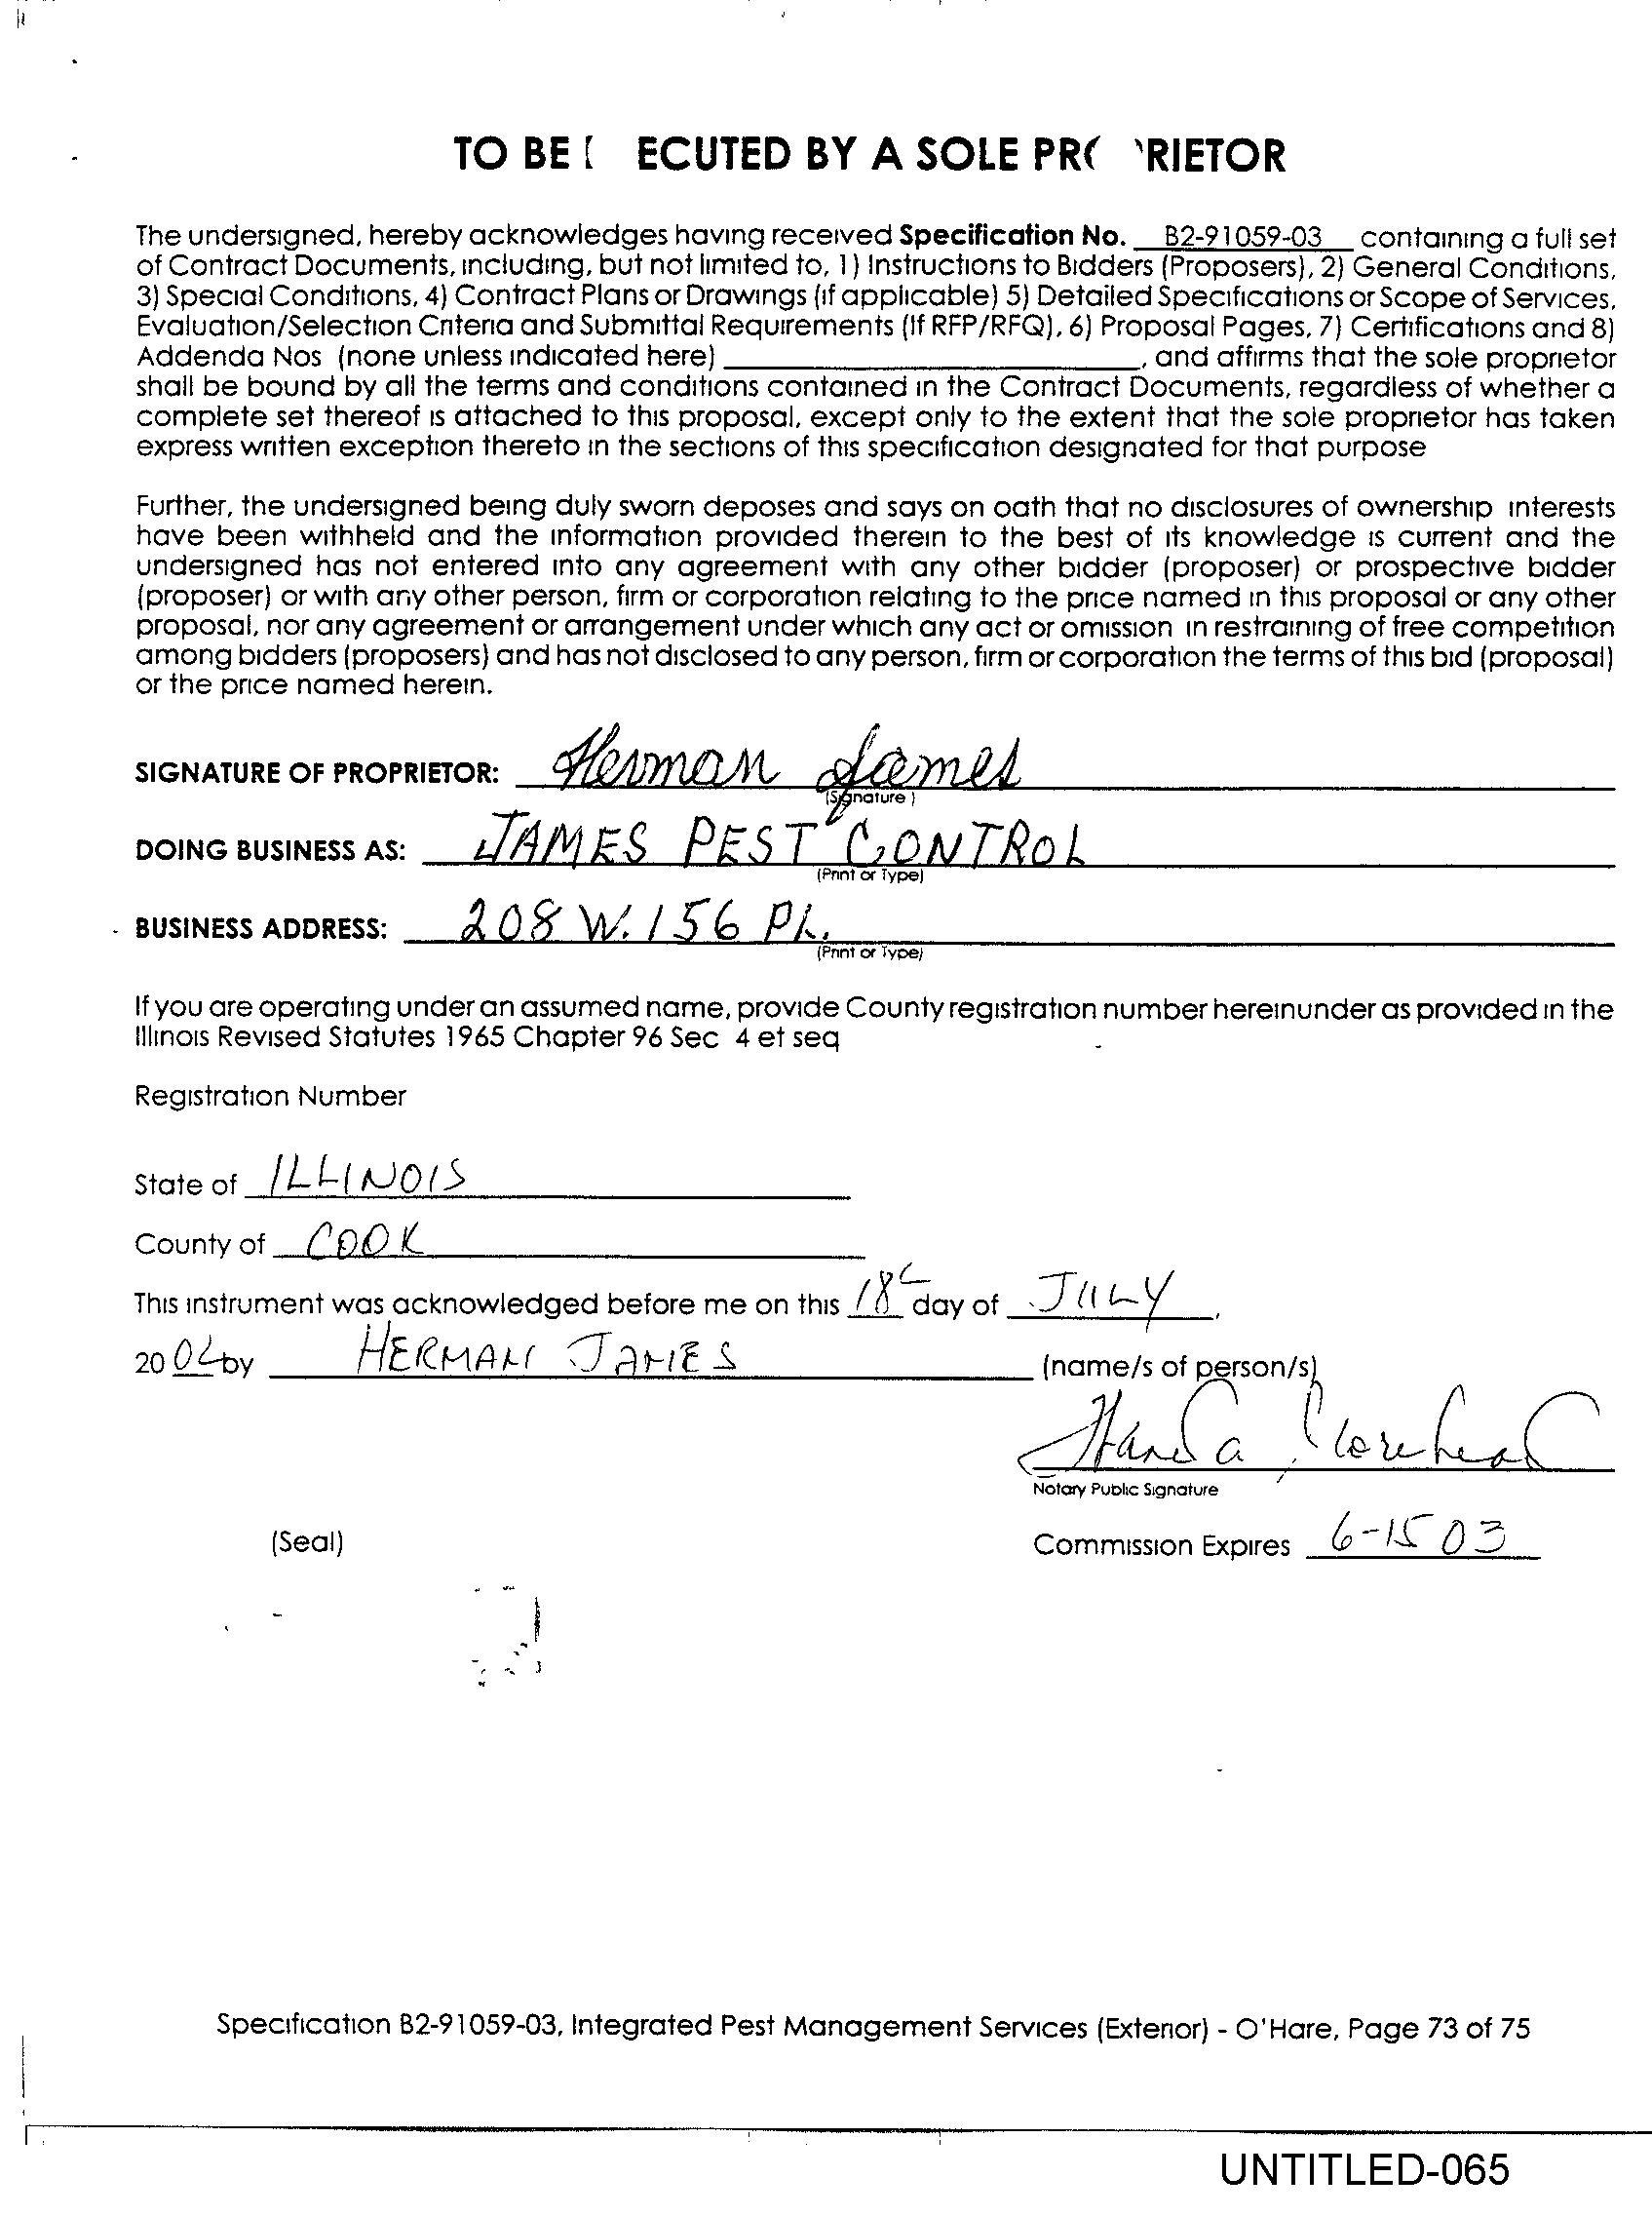 TO BE ECUTED BY A SOLE PR RIETOR
The undersigned, hereby acknowledges having received Specification No. B2-91059-03 containing a full set
of Contract Documents, including, but not limited to, 1) Instructions to Bidders (Proposers), 2) General Conditions,
3) Special Conditions, 4) Contract Plans or Drawings (if applicable) 5) Detailed Specifications or Scope of Services,
Evaluation/Selection Criteria and Submittal Requirements (If RFP/RFQ), 6) Proposal Pages, 7) Certifications and 8)
Addenda Nos (none unless indicated here) , and affirms that the sole proprietor
shall be bound by all the terms and conditions contained in the Contract Documents, regardless of whether a
complete set thereof is attached to this proposal, except only to the extent that the sole proprietor has taken
express written exception thereto in the sections of this specification designated for that purpose
Further, the undersigned being duly sworn deposes and says on oath that no disclosures of ownership interests
have been withheld and the information provided therein to the best of its knowledge is current and the
undersigned has not entered into any agreement with any other bidder (proposer) or prospective bidder
(proposer) or with any other person, firm or corporation relating to the price named in this proposal or any other
proposal, nor any agreement or arrangement under which any act or omission in restraining of free competition
among bidders (proposers) and has not disclosed to any person, firm or corporation the terms of this bid (proposal)
or the price named herein.
SIGNATURE OF PROPRIETOR: Herman James
(Signature)
DOING BUSINESS AS: JAMES PEST CONTROL
(Print or Type)
BUSINESS ADDRESS: 208 W. 156 PL.
(Print or Type)
If you are operating under an assumed name, provide County registration number hereinunder as provided in the
Illinois Revised Statutes 1965 Chapter 96 Sec 4 et seq
Registration Number
State of ILLINOIS
County of COOK
This instrument was acknowledged before me on this 18 day of JULY,
20 02 by HERMAN JAMES (name/s of person/s)
Notary Public Signature
(Seal) Commission Expires 6-15 03
Specification B2-91059-03, Integrated Pest Management Services (Exterior) - O'Hare, Page 73 of 75
UNTITLED-065